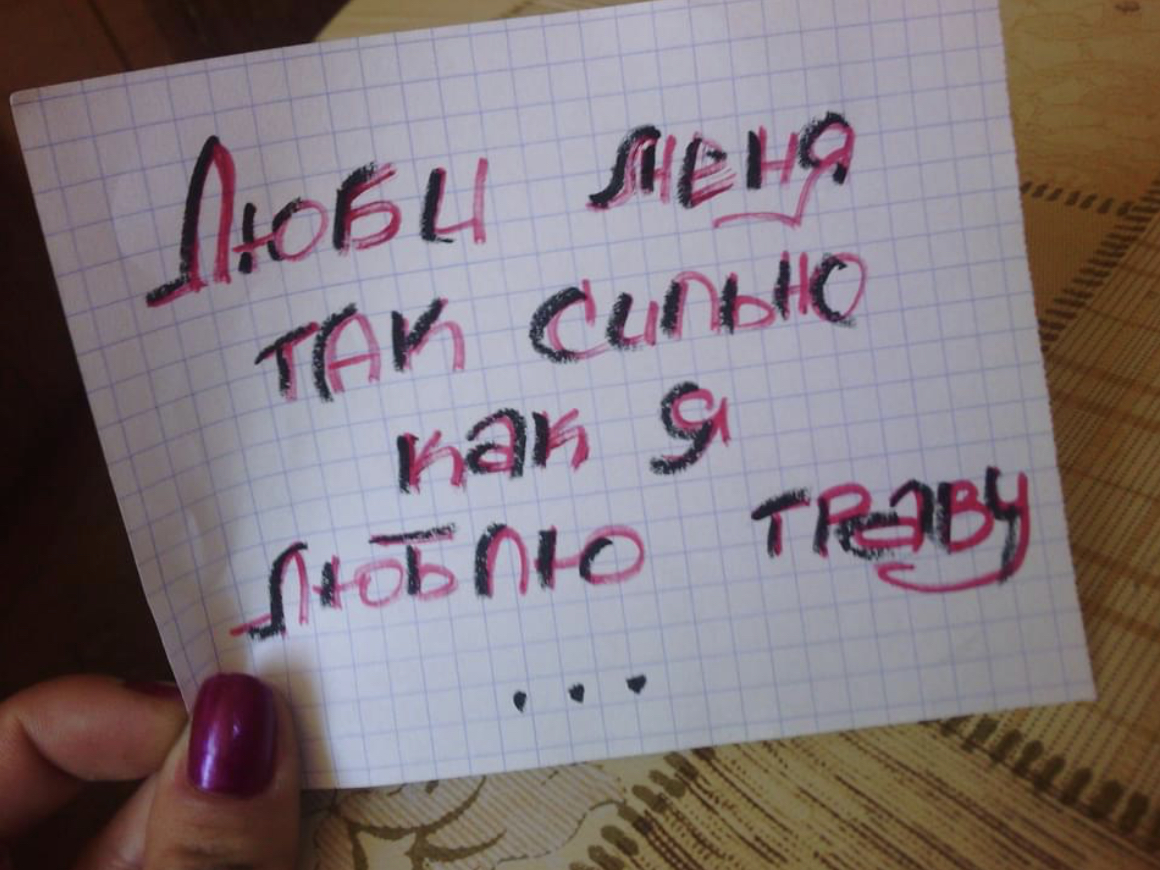 Люби меня
так сильно
как я
люблю траву
...